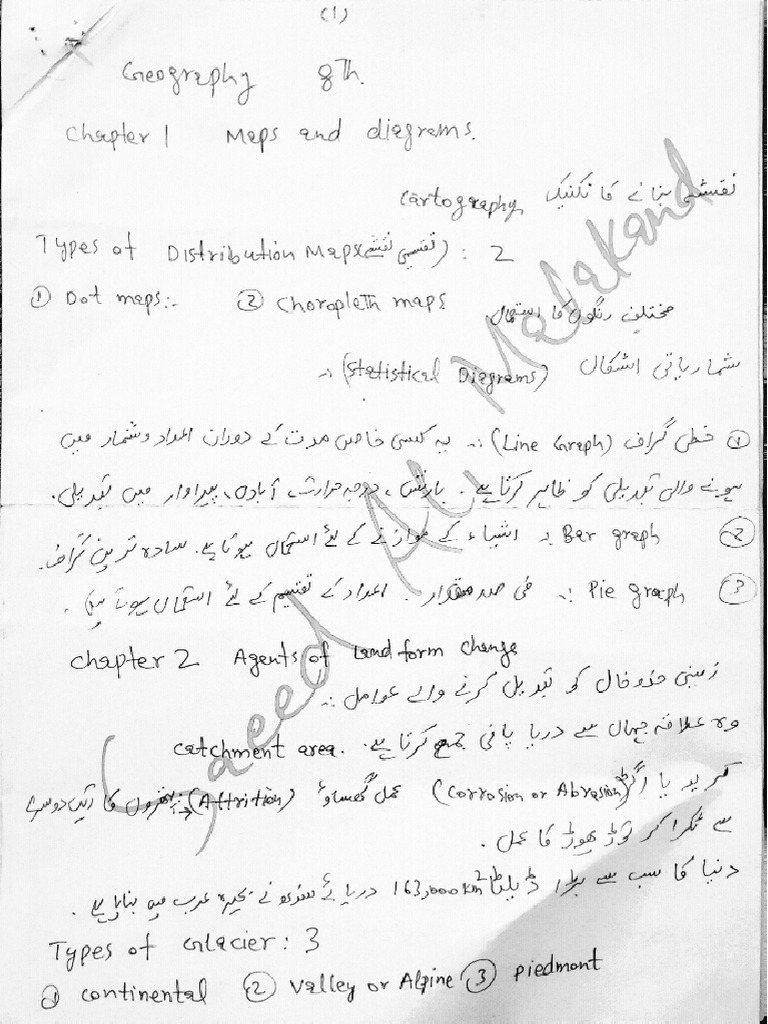 (1)
Geography 8Th.
Chapter 1 Maps and diagrams.
نقشے بنانے کا تکنیک Cartography
Types of Distribution Maps (تقسیمی نقشے) : 2
① Dot maps:- ② Choropleth maps مختلف رنگوں کا استعمال
شماریاتی اشکال (Statistical Diagrams) :-
① خطی گراف (Line Graph) :- یہ کسی خاص مدت کے دوران اعداد و شمار میں
ہونے والی تبدیلی کو ظاہر کرتا ہے۔ بارش، درجہ حرارت، آبادی، پیداوار میں تبدیلی۔
② Bar graph :- اشیاء کے موازنے کے لئے استعمال ہوتا ہے۔ سادہ ترین گراف۔
③ Pie graph :- فی صد مقدار۔ اعداد کے تقسیم کے لئے استعمال ہوتا
Chapter 2 Agents of Land form change
زمینی خدوخال کو تبدیل کرنے والے عوامل :-
وہ علاقہ جہاں سے دریا پانی جمع کرتا ہے۔ catchment area.
کرید یا رگڑ (Corrosion or Abrasion) عمل گھساؤ (Attrition) پتھروں کا ایک دوسرے
سے ٹکرا کر توڑ پھوڑ کا عمل۔
دنیا کا سب سے بڑا ڈیلٹا 163,000 km² دریائے سندھ نے بحیرہ عرب میں بنایا ہے۔
Types of Glacier : 3
① continental ② Valley or Alpine ③ piedmont
Saeed Ali Malakand